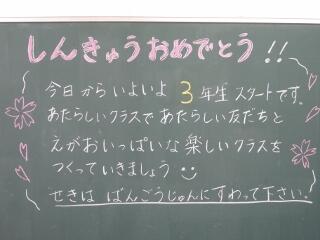 しんきゅうおめでとう!!
今日からいよいよ3年生スタートです。
あたらしいクラスであたらしい友だちと
えがおいっぱいな楽しいクラスを
つくっていきましょう
せきは ばんごうじゅんにすわって下さい。